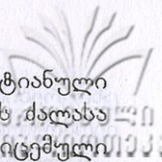 ტიანული
ს ძალასა
იცემული